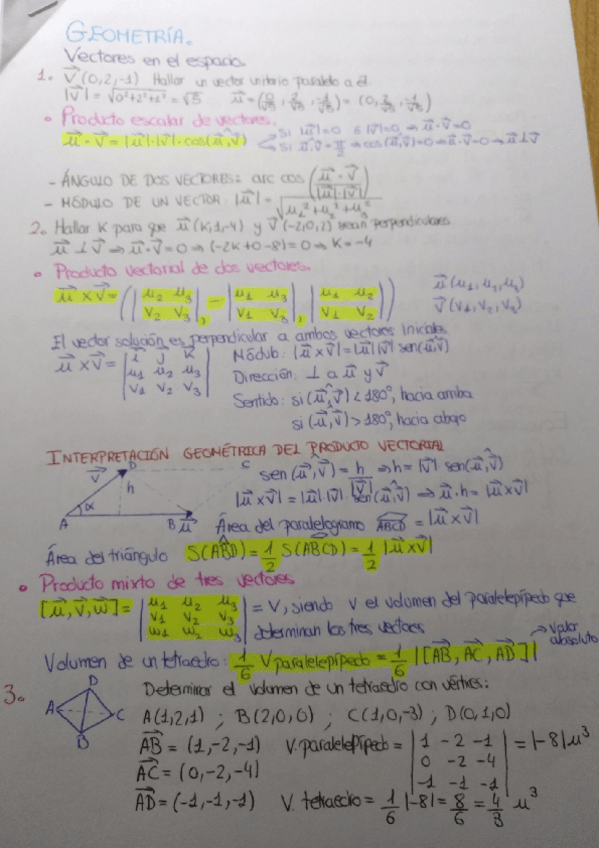 GEOMETRÍA.
Vectores en el espacio.
1. V⃗(0,2,-1) Hallar un vector unitario paralelo a él
|V⃗| = √(0²+2²+1²) = √5   u⃗ = (0/√5, 2/√5, -1/√5) = (0, 2/√5, -1/√5)
• Producto escalar de vectores.
u⃗ · v⃗ = |u⃗|·|v⃗|·cos(u⃗,v⃗)
Si |u⃗|=0 ó |v⃗|=0 ⇒ u⃗·v⃗=0
Si u⃗,v⃗ = π/2 ⇒ cos(u⃗,v⃗)=0 ⇒ u⃗·v⃗=0 ⇒ u⃗⊥v⃗
- ÁNGULO DE DOS VECTORES: arc cos (u⃗·v⃗ / |u⃗|·|v⃗|)
- MÓDULO DE UN VECTOR: |u⃗| = √(u₁²+u₂²+u₃²)
2. Hallar K para que u⃗(K,1,-4) y v⃗(-2,0,2) sean perpendiculares
u⃗ ⊥ v⃗ ⇒ u⃗·v⃗=0 ⇒ (-2K+0-8)=0 ⇒ K=-4
• Producto vectorial de dos vectores.
u⃗ x v⃗ = (|u₂ u₃|, -|u₁ u₃|, |u₁ u₂|)   u⃗(u₁,u₂,u₃)
|v₂ v₃| |v₁ v₃| |v₁ v₂|   v⃗(v₁,v₂,v₃)
El vector solución es perpendicular a ambos vectores iniciales
u⃗ x v⃗ = | i⃗ j⃗ k⃗ |
| u₁ u₂ u₃ |
| v₁ v₂ v₃ |
Módulo: |u⃗ x v⃗| = |u⃗||v⃗| sen(u⃗,v⃗)
Dirección: ⊥ a u⃗ y v⃗
Sentido: si (u⃗,v⃗) < 180°, hacia arriba
si (u⃗,v⃗) > 180°, hacia abajo
INTERPRETACIÓN GEOMÉTRICA DEL PRODUCTO VECTORIAL
A B C D v⃗ h α u⃗
sen(u⃗,v⃗) = h/|v⃗| ⇒ h = |v⃗| sen(u⃗,v⃗)
|u⃗ x v⃗| = |u⃗|·|v⃗| sen(u⃗,v⃗) ⇒ u⃗·h = |u⃗ x v⃗|
Área del paralelogramo ABCD = |u⃗ x v⃗|
Área del triángulo S(ABD) = 1/2 S(ABCD) = 1/2 |u⃗ x v⃗|
• Producto mixto de tres vectores
[u⃗, v⃗, w⃗] = | u₁ u₂ u₃ |
| v₁ v₂ v₃ | = V, siendo V el volumen del paralelepípedo que
| w₁ w₂ w₃ | determinan los tres vectores
→ valor absoluto
Volumen de un tetraedro: 1/6 V paralelepípedo = 1/6 |[AB⃗, AC⃗, AD⃗]|
3. A B C D
Determinar el volumen de un tetraedro con vértices:
A(1,2,1) ; B(2,0,0) ; C(1,0,-3) ; D(0,1,0)
AB⃗ = (1,-2,-1)   V. paralelepípedo = | 1 -2 -1 | = |-8| u³
AC⃗ = (0,-2,-4)   | 0 -2 -4 |
| -1 -1 -1 |
AD⃗ = (-1,-1,-1)   V. tetraedro = 1/6 |-8| = 8/6 = 4/3 u³